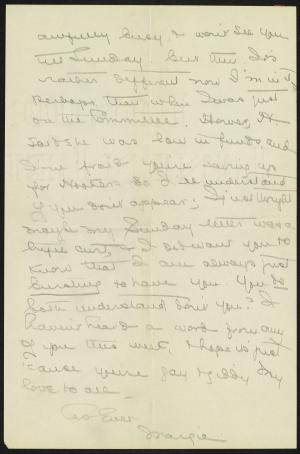 awfully busy, & won't see you
till Sunday. But then it's
rather different now I'm in it,
perhaps, than when I was just
on the Committee. However, H.
said she was low in funds, and
I'm 'fraid you're saving up
for Northern so I'll understand
if you don't appear; I just thought
maybe my Sunday letter was a
bit curt, & I did want you to
know that I am always just
bursting to have you. You do
both understand don't you? I
haven't heard a word from any
of you this week, & hope it's just
'cause you're gay & giddy. My
love to all –
As Ever
Margie